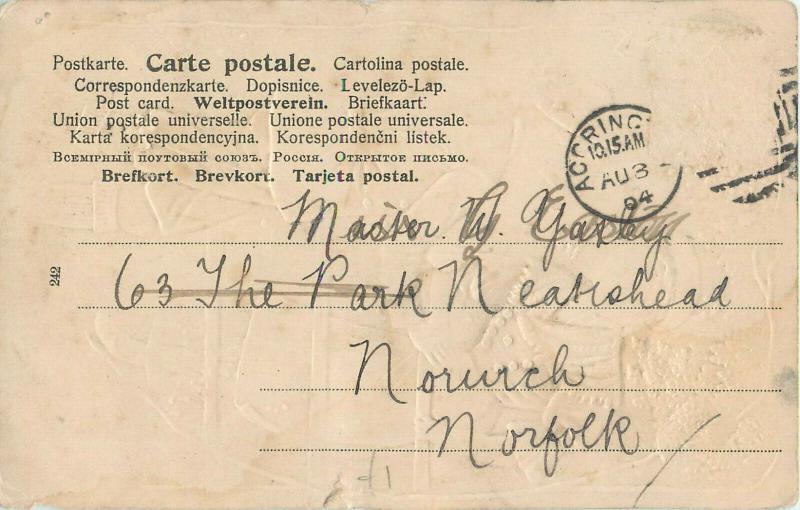 Postkarte. Carte postale. Cartolina postale.
Correspondenzkarte. Dopisnice. Levelező-Lap.
Post card. Weltpostverein. Briefkaart.
Union postale universelle. Unione postale universale.
Karta korespondencyjna. Korespondenčni listek.
Всемірный почтовый союзъ. Россія. Открытое письмо.
Brefkort. Brevkort. Tarjeta postal.
ACCRINGT
10.15.AM
AU 3
04
Master. W. Yaxley
63 The Park Neatishead
242
Norwich
Norfolk